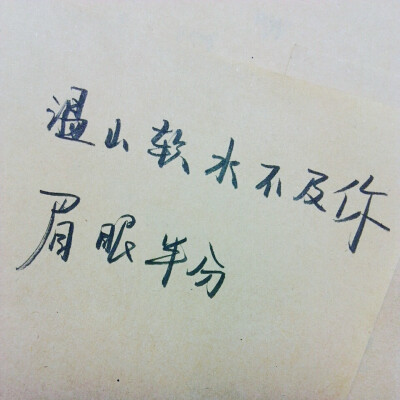 温山软水不及你
眉眼半分